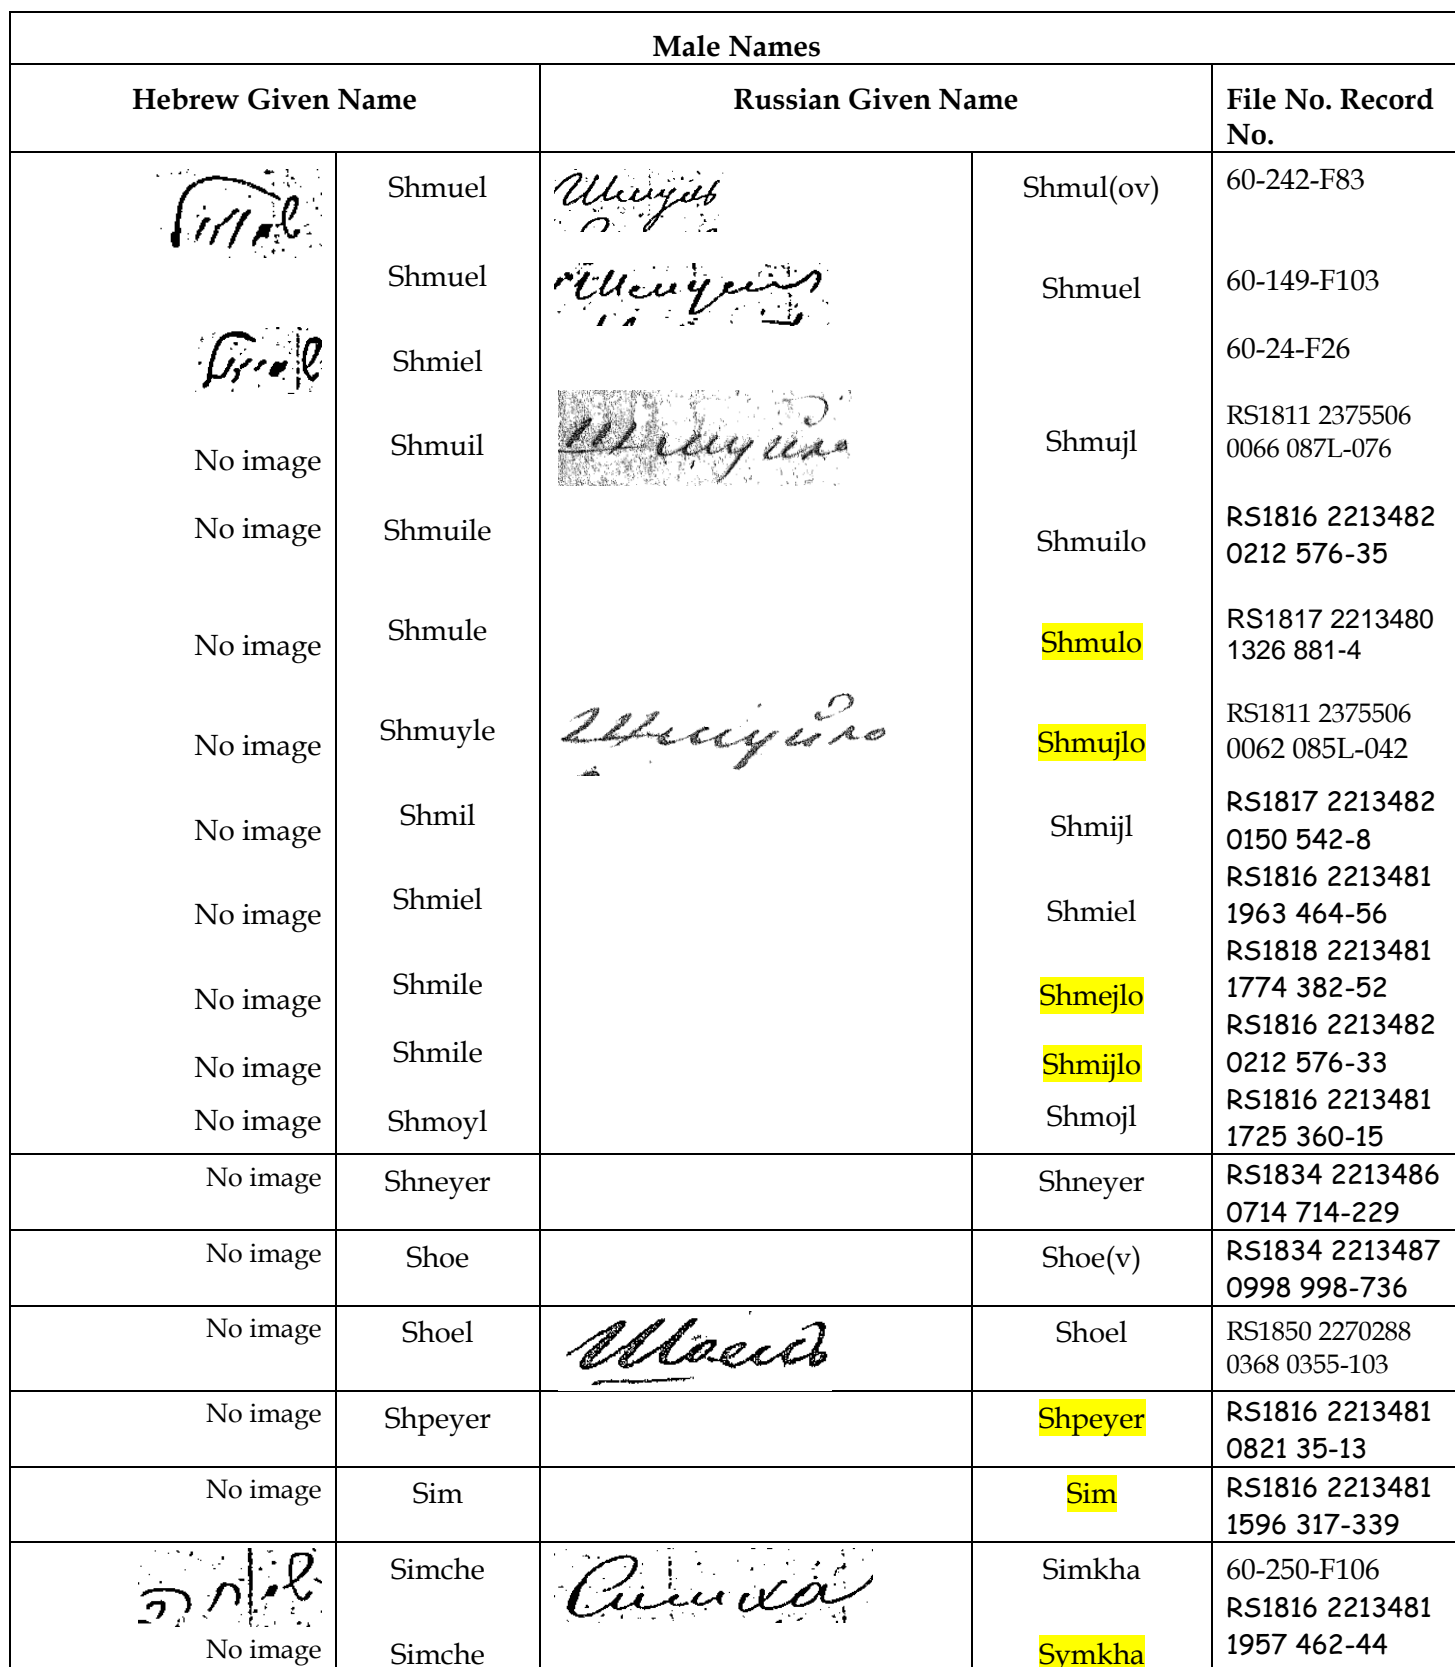 Male Names
Hebrew Given Name Russian Given Name File No. Record
No.
שמואל Shmuel Шмуль Shmul(ov) 60-242-F83
Shmuel Шмуель Shmuel 60-149-F103
Shmiel 60-24-F26
No image Shmuil Шмуйл Shmujl RS1811 2375506
0066 087L-076
No image Shmuile Shmuilo RS1816 2213482
0212 576-35
No image Shmule Shmulo RS1817 2213480
1326 881-4
No image Shmuyle Шмуйло Shmujlo RS1811 2375506
0062 085L-042
No image Shmil Shmijl RS1817 2213482
0150 542-8
No image Shmiel Shmiel RS1816 2213481
1963 464-56
No image Shmile Shmejlo RS1818 2213481
1774 382-52
No image Shmile Shmijlo RS1816 2213482
0212 576-33
No image Shmoyl Shmojl RS1816 2213481
1725 360-15
No image Shneyer Shneyer RS1834 2213486
0714 714-229
No image Shoe Shoe(v) RS1834 2213487
0998 998-736
No image Shoel Шоель Shoel RS1850 2270288
0368 0355-103
No image Shpeyer Shpeyer RS1816 2213481
0821 35-13
No image Sim Sim RS1816 2213481
1596 317-339
שמחה Simche Симха Simkha 60-250-F106
RS1816 2213481
No image Simche Symkha 1957 462-44